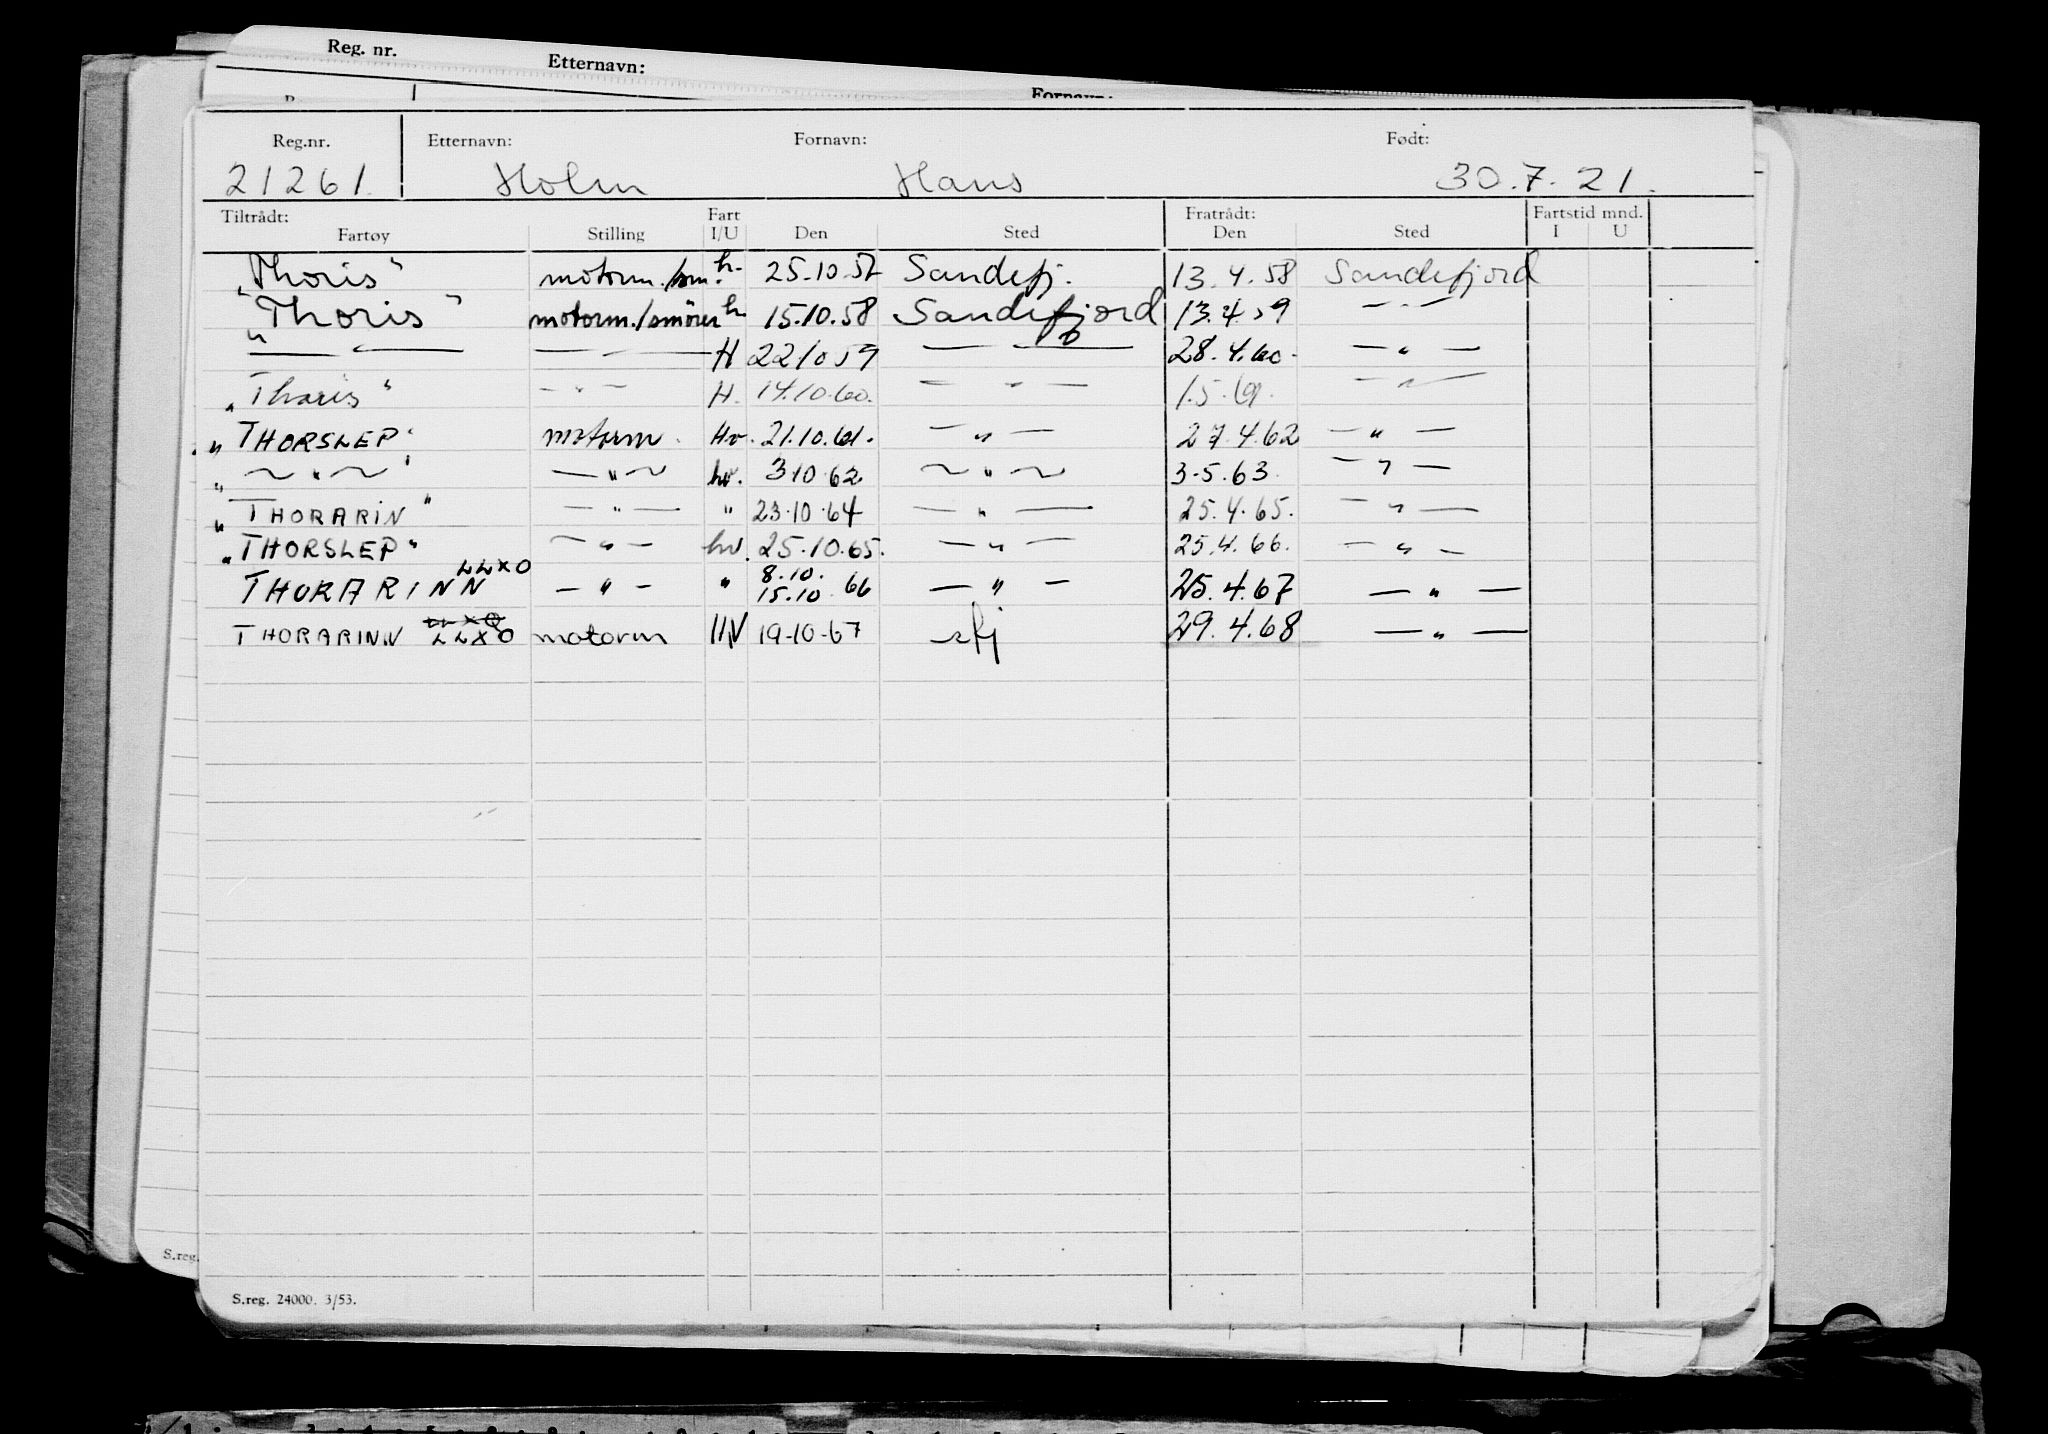 Reg. nr. Etternavn:
Fornavn:
Reg.nr. Etternavn: Fornavn: Født:
21261. Holm Hans 30.7.21.
Tiltrådt: Fart Fratrådt: Fartstid mnd.
Fartøy Stilling I/U Den Sted Den Sted I U
"Thoris" motorm./sm. h. 25.10.57 Sandefj. 13.4.58 Sandefjord
"Thoris" motorm./smører h 15.10.58 Sandefjord 13.4.59 — " —
— " — — " — H 22/10 59 — " — 28.4.60. — " —
"Thoris" — " — H. 14.10.60. — " — 1.5.61. — " —
"THORSLEP" motorm. Hv. 21.10.61. — " — 27.4.62 — " —
" — " — " — " — hv. 3.10.62 — " — 3.5.63. — " —
"THORARIN" — " — " 23.10.64 — " — 25.4.65. — " —
"THORSLEP" — " — hv. 25.10.65. — " — 25.4.66. — " —
LLXO
8.10.
THORARINN — " — " 15.10 66 — " — 25.4.67 — " —
THORARINN LLXO motorm HV 19-10-67 sfj 29.4.68 — " —
S.reg.
S.reg. 24000. 3/53.